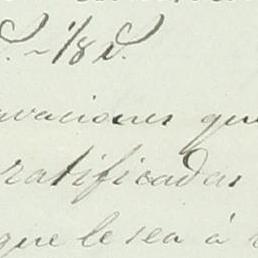 1/8
vaciones que
ratificadas
que le sea á